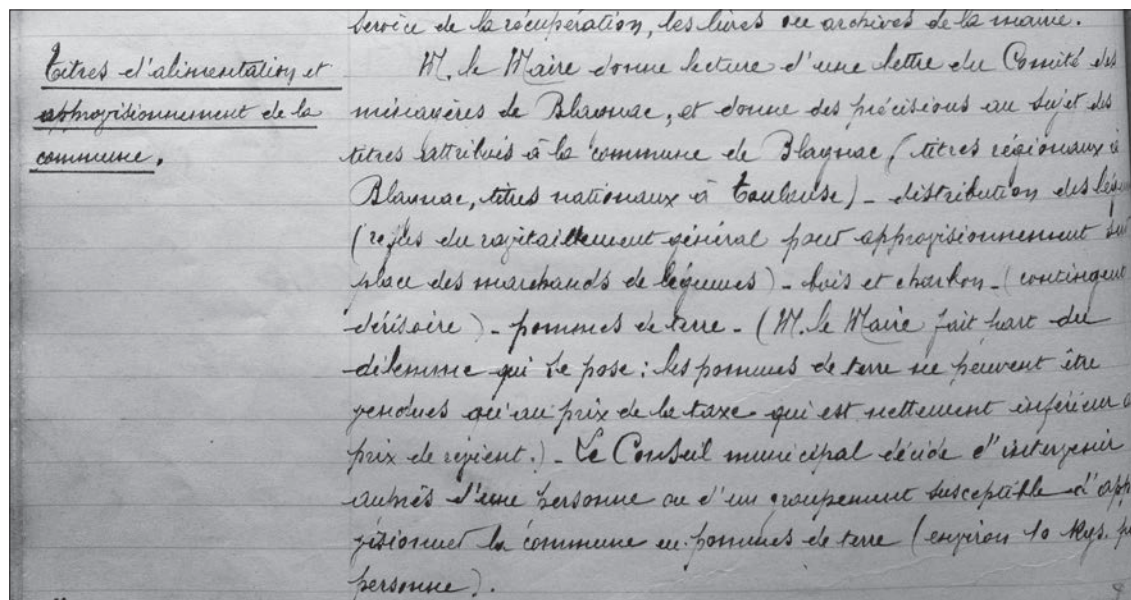 service de la récupération, les livres ou archives de la mairie.
Titres d'alimentation et
approvisionnement de la
commune.
M. le Maire donne lecture d'une lettre du Comité des
ménagères de Blagnac, et donne des précisions au sujet des
titres attribués à la commune de Blagnac, (titres régionaux à
Blagnac, titres nationaux à Toulouse) - distribution des légu
(refus du ravitaillement général pour approvisionnement sur
place des marchands de légumes) - bois et charbon - (contingent
dérisoire) - pommes de terre - (M. le Maire fait part du
dilemme qui se pose : les pommes de terre ne peuvent être
vendues qu'au prix de la taxe qui est nettement inférieur
prix de revient.) - Le Conseil municipal décide d'intervenir
auprès d'une personne ou d'un groupement susceptible d'app
visionner la commune en pommes de terre (environ 10 kgs. p
personne).